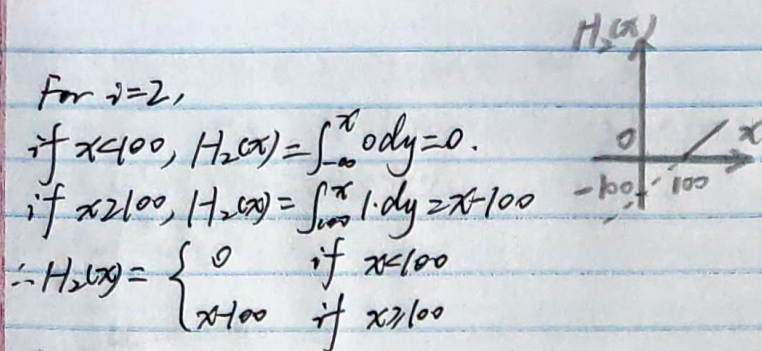 For i=2,
if x<100, H₂(x)=∫_{-∞}^{x} 0dy=0.
if x≥100, H₂(x)=∫_{100}^{x} 1·dy=x-100
∴H₂(x)= { 0 if x<100
x-100 if x≥100
H₂(x)
0 x
-100 100